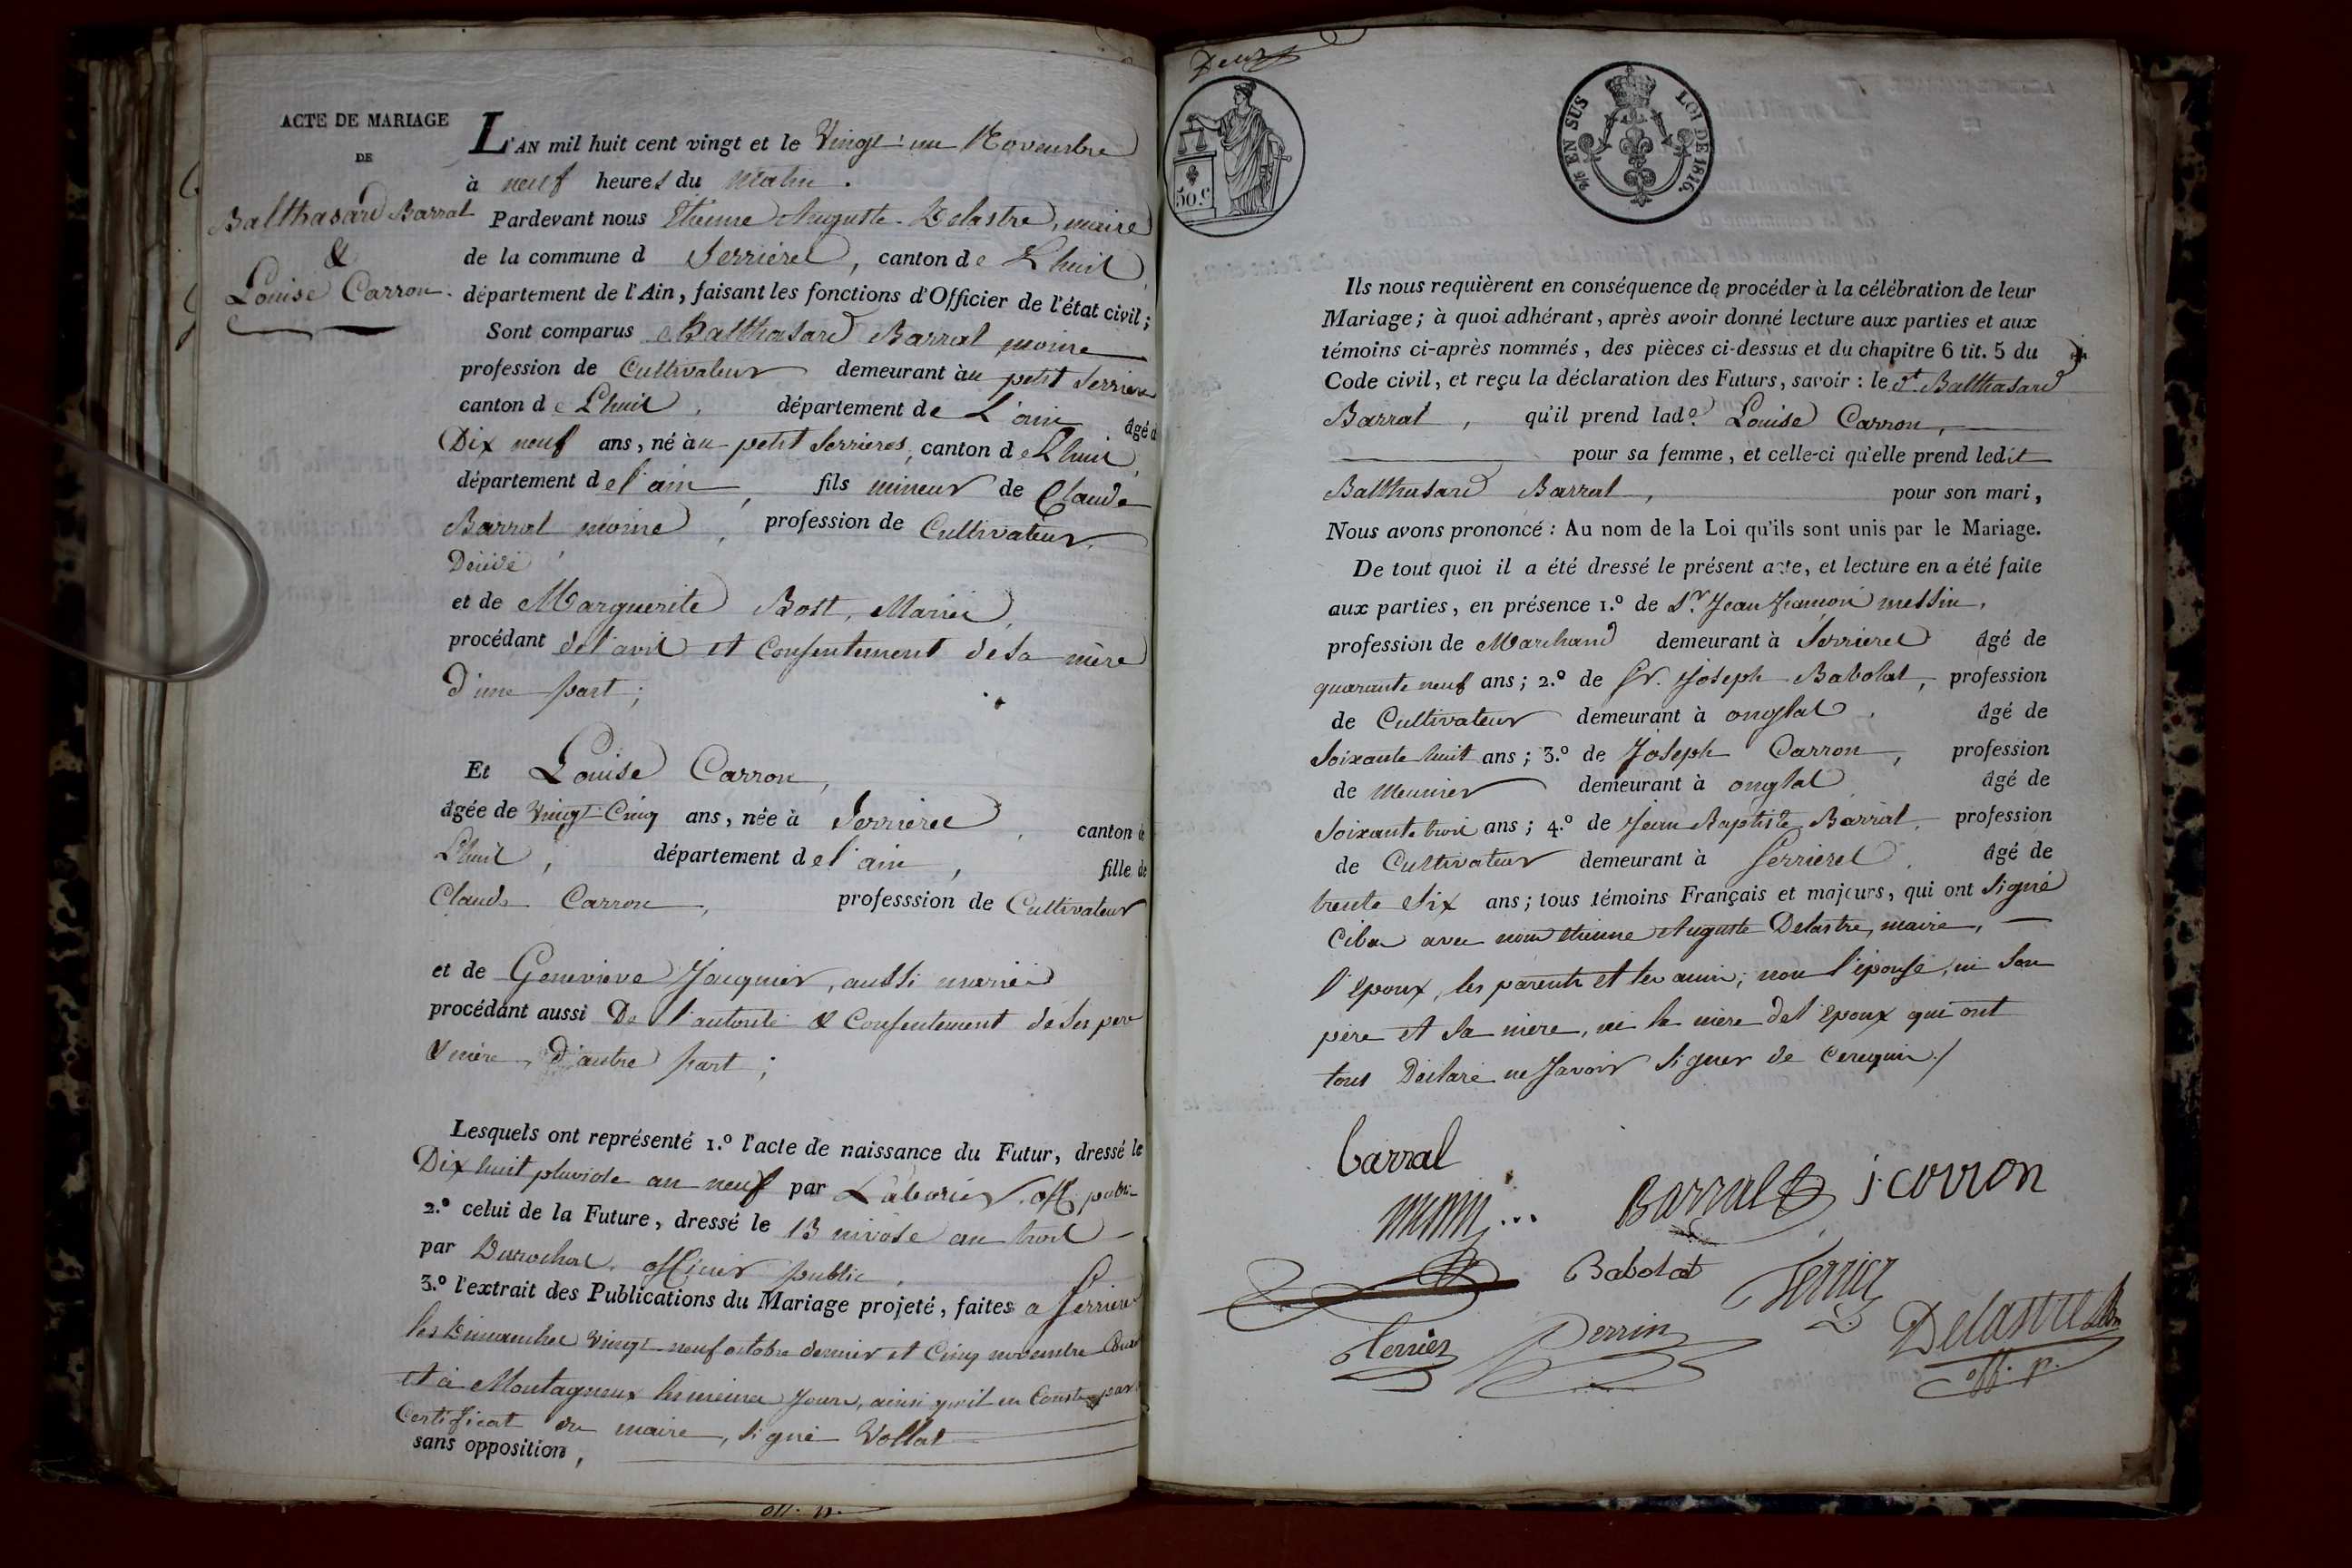 ACTE DE MARIAGE
DE
Balthasard Barral
&
Louise Carron.
L'AN mil huit cent vingt et le Vingt un Novembre
à neuf heures du matin.
Pardevant nous Etienne Auguste Delastre, maire
de la commune d Serrieres, canton de Lhuis
département de l'Ain, faisant les fonctions d'Officier de l'état civil;
Sont comparus Balthasard Barral moine
profession de Cultivateur demeurant au petit Serrieres
canton de Lhuis, département de L'ain âgé d
Dix neuf ans, né au petit Serrieres, canton de Lhuis,
département de l'ain, fils mineur de Claude
Barral moine, profession de Cultivateur,
Décédé
et de Marguerite Bost, Mariés,
procédant de l'avis et Consentement de sa mère
d'une part;
Et Louise Carron,
âgée de Vingt-Cinq ans, née à Serrieres, canton de
Lhuis, département de l'ain, fille de
Claude Carron, professsion de Cultivateur
et de Genevieve Jacquier, aussi mariés
procédant aussi De l'autorité & Consentement de ses pere
& mère, d'autre part;
Lesquels ont représenté 1.º l'acte de naissance du Futur, dressé le
Dix huit pluviose an neuf par off. public
2.º celui de la Future, dressé le 13 nivose an trois
par Durochat, officier public,
3.º l'extrait des Publications du Mariage projeté, faites a Serrieres
les Dimanches vingt-neuf octobre dernier et Cinq novembre
et à Montagneux les memes Jours, ainsi qu'il en Conste par
Certificat du maire, signé Vollat
sans opposition,
off. p.
Deux
50 c.
2/5 EN SUS LOI DE 1816.
Ils nous requièrent en conséquence de procéder à la célébration de leur
Mariage; à quoi adhérant, après avoir donné lecture aux parties et aux
témoins ci-après nommés, des pièces ci-dessus et du chapitre 6 tit. 5 du
Code civil, et reçu la déclaration des Futurs, savoir: le dt Balthasard
Barral, qu'il prend lad.e Louise Carron,
pour sa femme, et celle-ci qu'elle prend ledit
Balthasard Barral, pour son mari,
Nous avons prononcé: Au nom de la Loi qu'ils sont unis par le Mariage.
De tout quoi il a été dressé le présent acte, et lecture en a été faite
aux parties, en présence 1.º de Sr. Jean François messin,
profession de Marchand demeurant à Serrieres âgé de
quarante neuf ans; 2.º de Sr. Joseph Babolat, profession
de Cultivateur demeurant à onglas, âgé de
Soixante huit ans; 3.º de Joseph Carron, profession
de Meunier demeurant à onglas âgé de
Soixante trois ans; 4.º de Jean Baptiste Barral, profession
de Cultivateur demeurant à Serrieres. âgé de
trente Six ans; tous témoins Français et majeurs, qui ont Signé
Cibas avec nous etienne Auguste Delastre, maire,
l'epoux, les parents et les amis; non l'épouse, ni son
père et sa mère, ni la mère de l'epoux qui ont
tous Déclaré ne Savoir Signer de Cerequis./
barral
Barral
j. corron
Babolat
Perrin
Delastre
off. p.